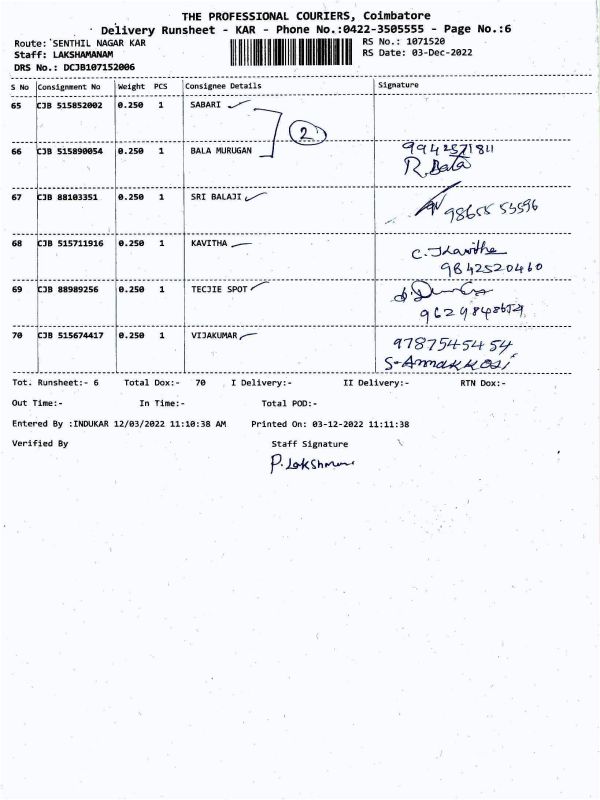 THE PROFESSIONAL COURIERS, Coimbatore
Delivery Runsheet - KAR - Phone No.:0422-3505555 - Page No.:6
Route: SENTHIL NAGAR KAR RS No.: 1071520
Staff: LAKSHAMANAM RS Date: 03-Dec-2022
DRS No.: DCJB107152006
S No Consignment No Weight PCS Consignee Details Signature
65 CJB 515852002 0.250 1 SABARI
2
66 CJB 515890054 0.250 1 BALA MURUGAN 9942571811
R. Bala
67 CJB 88103351 0.250 1 SRI BALAJI 98655 53596
68 CJB 515711916 0.250 1 KAVITHA C. Kavitha
9842520460
69 CJB 88989256 0.250 1 TECJIE SPOT
9629848654
70 CJB 515674417 0.250 1 VIJAKUMAR 9787545454
Tot. Runsheet:- 6 Total Dox:- 70 I Delivery:- II Delivery:- RTN Dox:-
Out Time:- In Time:- Total POD:-
Entered By :INDUKAR 12/03/2022 11:10:38 AM Printed On: 03-12-2022 11:11:38
Verified By Staff Signature
P. Lakshmana